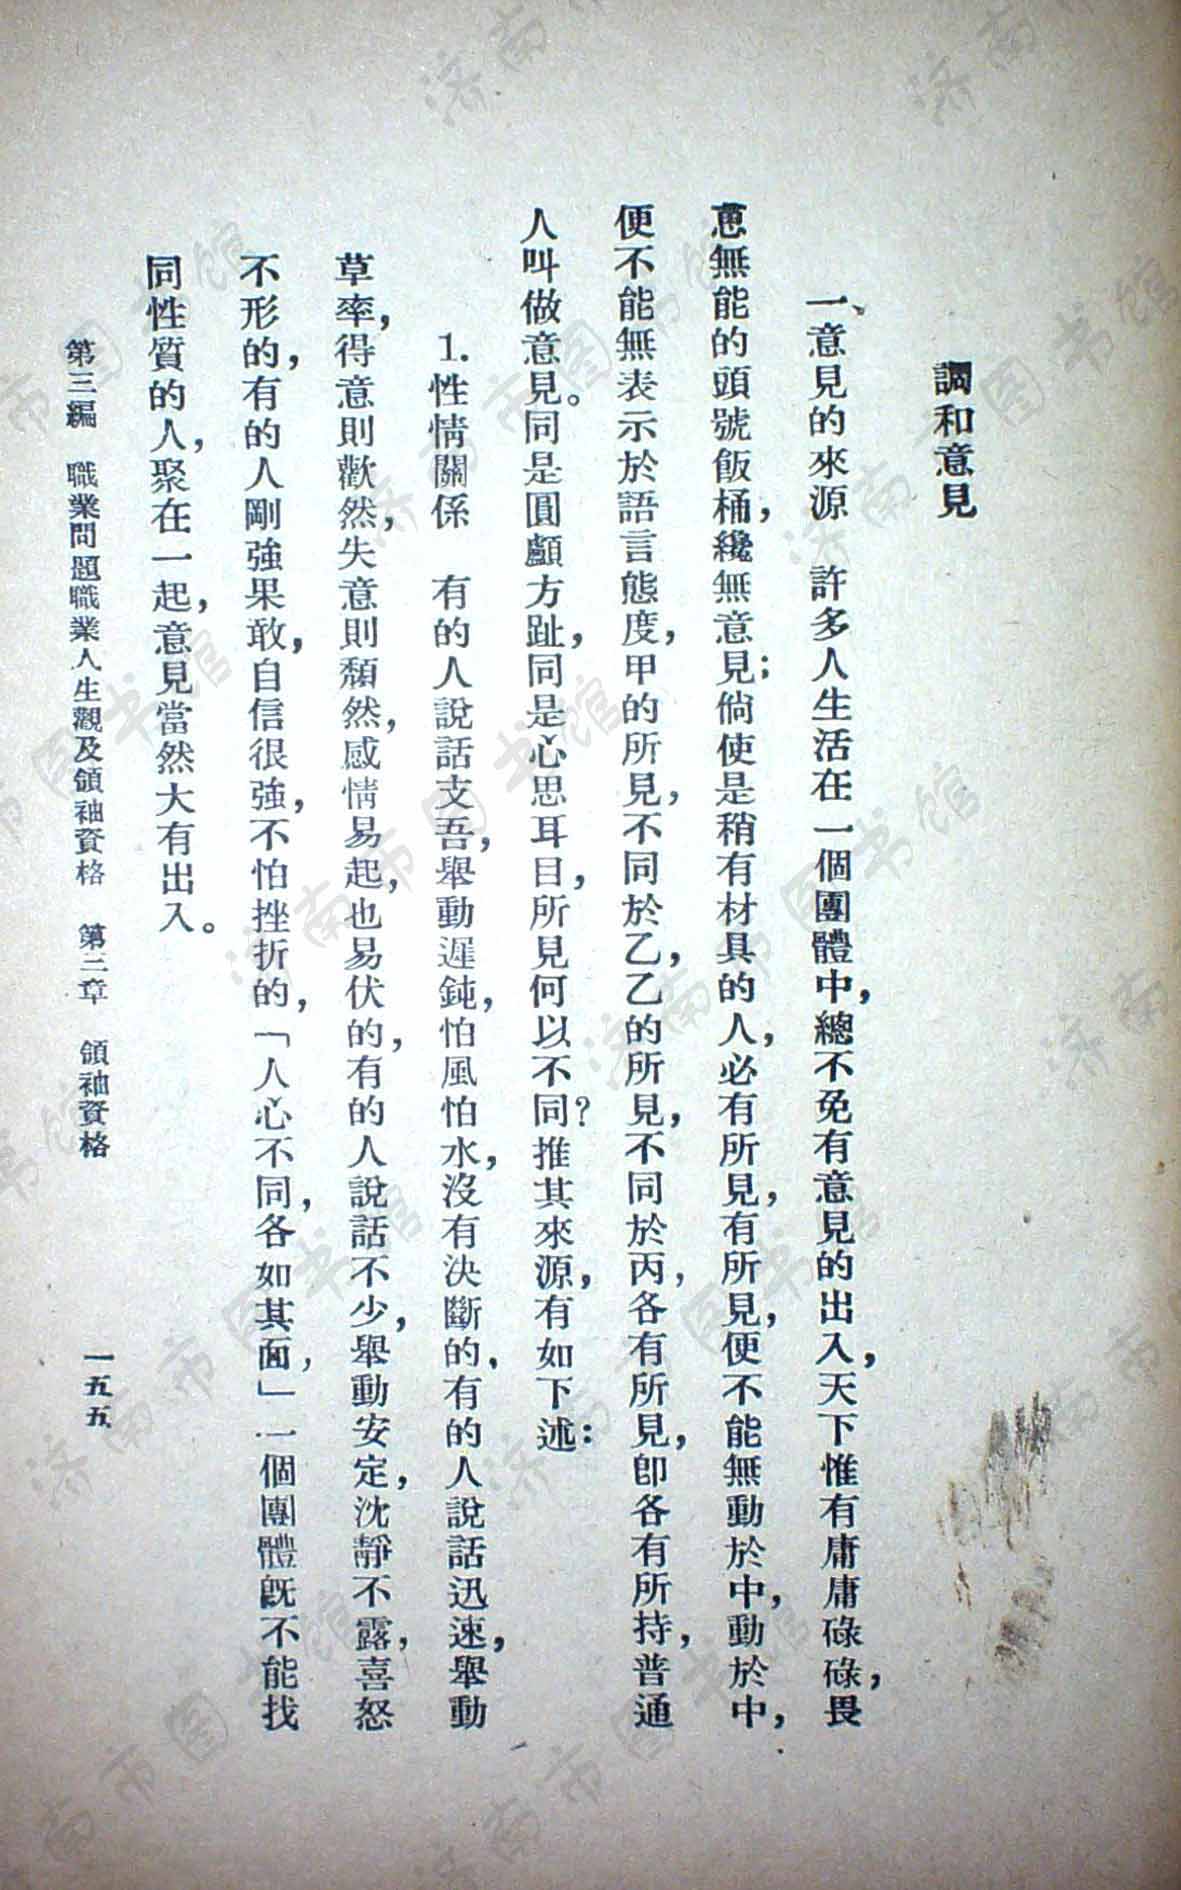 調和意見
一、意見的來源　許多人生活在一個團體中，總不免有意見的出入，天下惟有庸庸碌碌，畏
葸無能的頭號飯桶，纔無意見；倘使是稍有材具的人，必有所見，有所見，便不能無動於中，動於中，
便不能無表示於語言態度，甲的所見，不同於乙，乙的所見，不同於丙，各有所見，卽各有所持，普通
人叫做意見。同是圓顱方趾，同是心思耳目，所見何以不同？推其來源，有如下述：
1. 性情關係　有的人說話支吾，舉動遲鈍，怕風怕水，沒有決斷的，有的人說話迅速，舉動
草率，得意則歡然，失意則頹然，感情易起，也易伏的，有的人說話不少，舉動安定，沈靜不露，喜怒
不形的，有的人剛強果敢，自信很強，不怕挫折的，「人心不同，各如其面，」一個團體旣不能找
同性質的人，聚在一起，意見當然大有出入。
第三編　職業問題職業人生觀及領袖資格　第二章　領袖資格　一五五
济南市图书馆